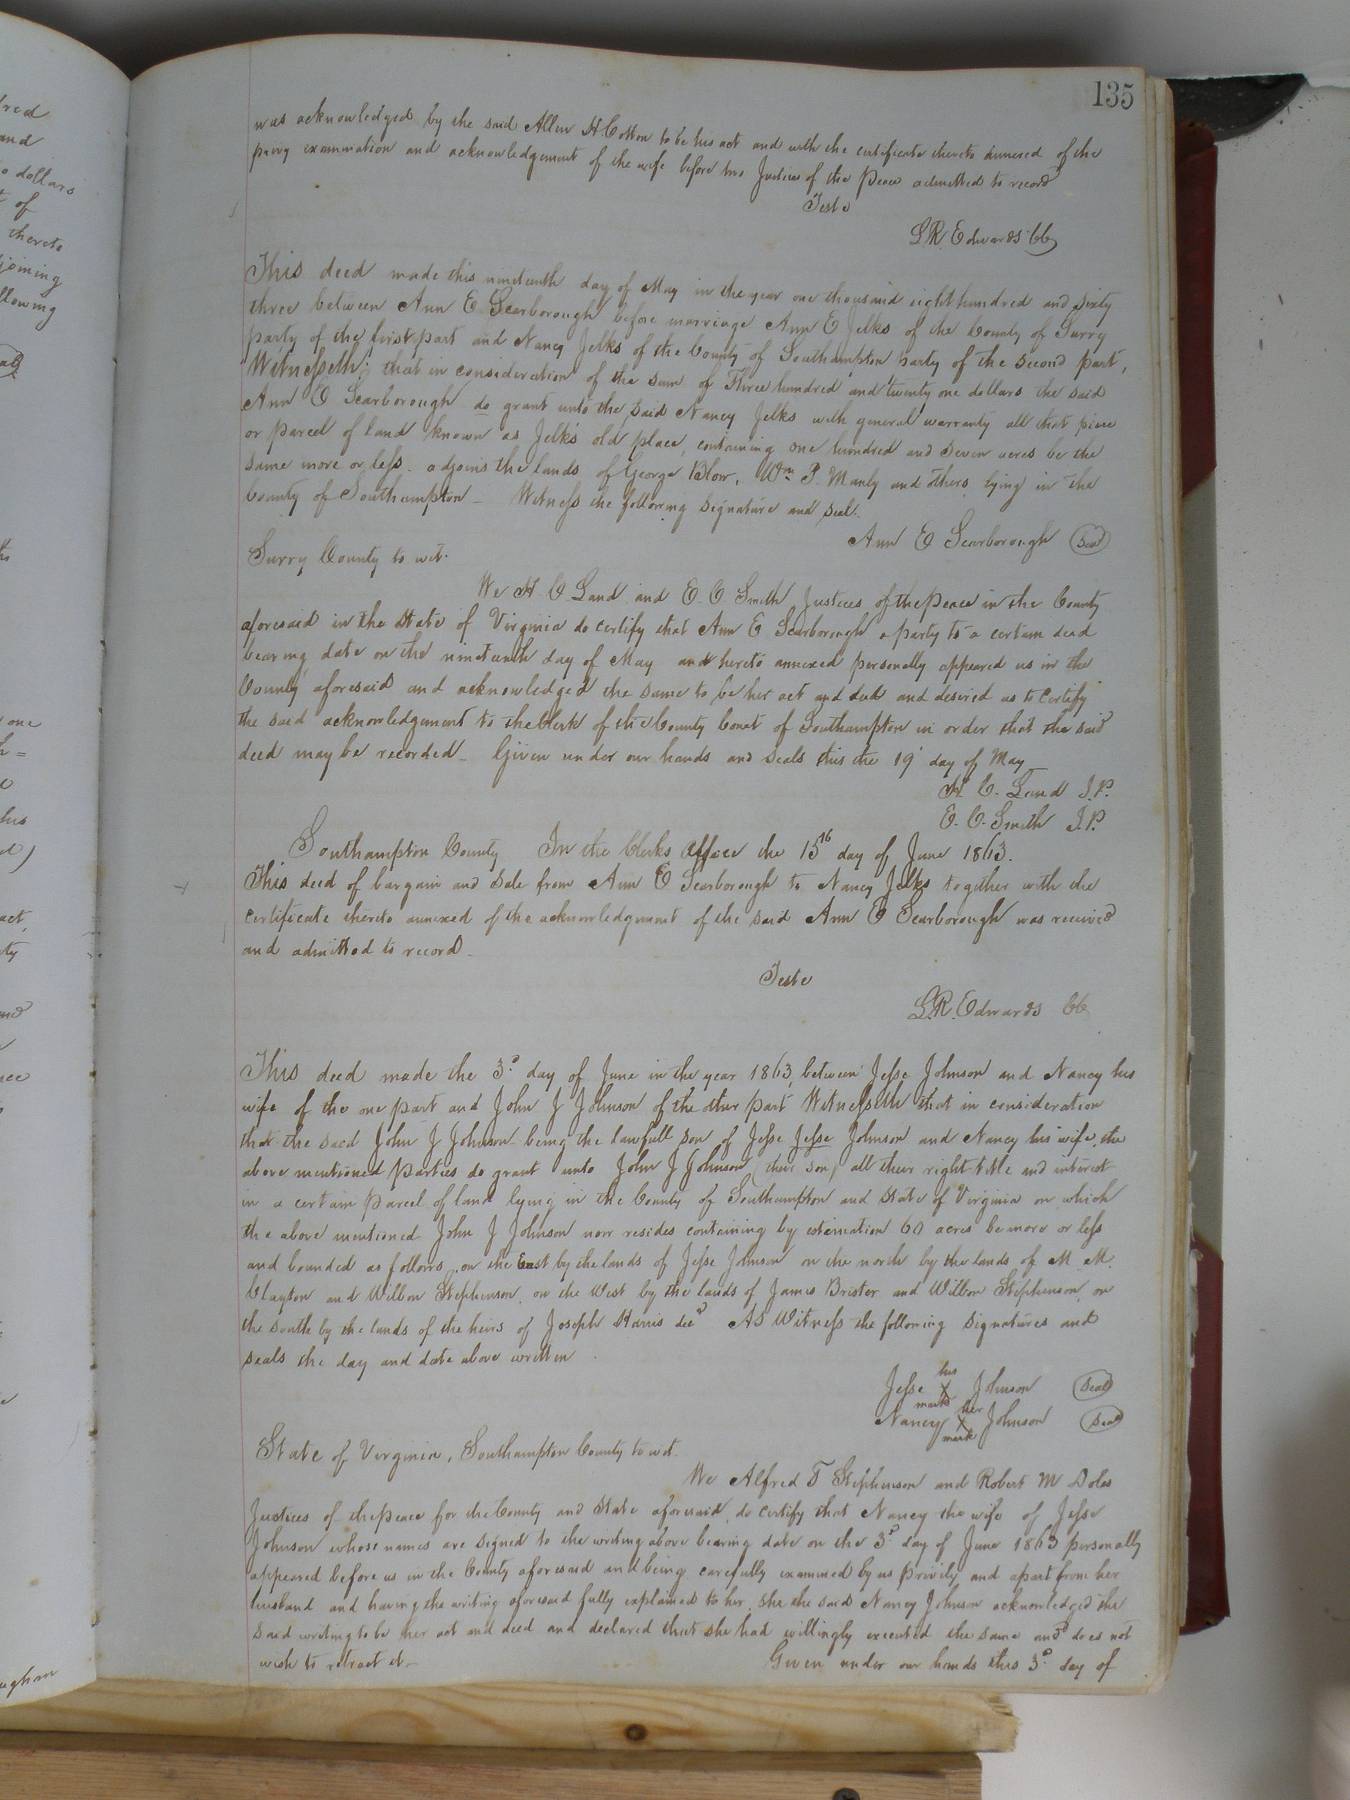 135
was acknowledged by the said Allen H Cotton to be his act and with the certificate thereto annexed of the
privy examination and acknowledgement of the wife before two Justices of the Peace admitted to record
Teste
L.R. Edwards CC
This deed made this nineteenth day of May in the year one thousand eight hundred and sixty
three between Ann E Scarborough before marriage Ann E Jelks of the County of Surry
party of the first part and Nancy Jelks of the County of Southampton party of the second part,
Witnesseth; that in consideration of the sum of Three hundred and twenty one dollars the said
Ann E Scarborough do grant unto the said Nancy Jelks with general warranty all that piece
or parcel of land known as Jelks old place, containing one hundred and seven acres be the
same more or less. adjoins the lands of George Blow, Wm P. Manly and others lying in the
County of Southampton - Witness the following signature and seal.
Ann E Scarborough Seal
Surry County to wit.
We H C Land and E. C Smith Justices of the peace in the County
aforesaid in the State of Virginia do certify that Ann E Scarborough a party to a certain deed
bearing date on the nineteenth day of May and hereto annexed personally appeared us in the
County aforesaid and acknowledged the same to be her act and deed and desired us to certify
the said acknowledgement to the Clerk of the County Court of Southampton in order that the said
deed may be recorded - Given under our hands and seals this the 19 day of May
H. C. Land J.P.
E. C. Smith J.P.
Southampton County In the Clerks Office the 15th day of June 1863.
This deed of bargain and sale from Ann E Scarborough to Nancy Jelks together with the
certificate thereto annexed of the acknowledgment of the said Ann E Scarborough was received
and admitted to record -
Teste
L.R. Edwards CC
This deed made the 3d day of June in the year 1863, between Jesse Johnson and Nancy his
wife of the one part and John J Johnson of the other part Witnesseth that in consideration
that the said John J Johnson being the lawfull son of Jesse Jesse Johnson and Nancy his wife, the
above mentioned parties do grant unto John J Johnson, their son, all their right title and interest
in a certain parcel of land lying in the County of Southampton and State of Virginia on which
the above mentioned John J Johnson now resides containing by estimation 60 acres be more or less
and bounded as follows, on the East by the lands of Jesse Johnson on the north by the lands of M. M.
Clayton and Wilbon Stephenson, on the West by the lands of James Brister and Wilbon Stephenson, on
the South by the lands of the heirs of Joseph Harris decd As Witness the following signatures and
seals the day and date above written.
Jesse his X mark Johnson Seal
Nancy her X mark Johnson Seal
State of Virginia, Southampton County to wit.
We Alfred T Stephenson and Robert M Doles
Justices of the peace for the County and State aforesaid, do certify that Nancy the wife of Jesse
Johnson whose names are signed to the writing above bearing date on the 3d day of June 1863 personally
appeared before us in the County aforesaid and being carefully examined by us privily and apart from her
husband and having the writing aforesaid fully explained to her, she the said Nancy Johnson acknowledged the
said writing to be her act and deed and declared that she had willingly executed the same and does not
wish to retract it - Given under our hands this 3d day of